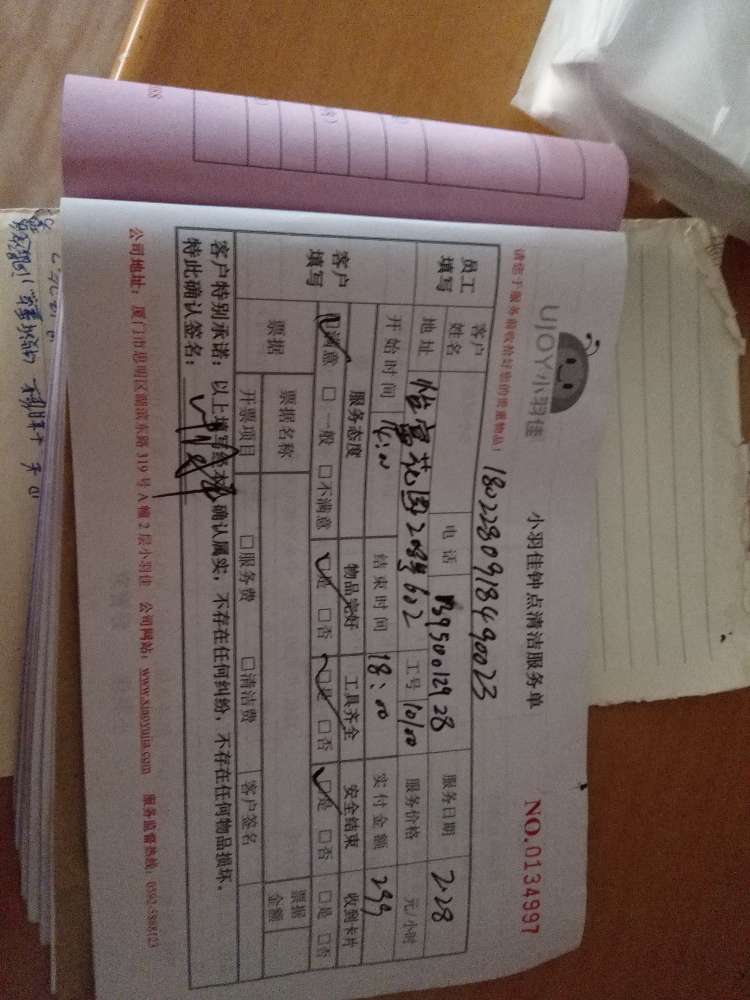 UJOY小羽佳
小羽佳钟点清洁服务单
NO.0134997
请您于服务前收拾好您的贵重物品！
1802280918490023
员工填写
客户姓名
电话 13950012928
服务日期 2.28
地址 怡富花园208号602
工号 10100
服务价格 元/小时
开始时间 14:00
结束时间 18:00
实付金额 299
客户填写
服务态度 物品完好 工具齐全 安全结束 收到卡片
☑满意 □一般 □不满意 ☑是 □否 ☑是 □否 ☑是 □否 □是 □否
票据
票据名称
票据金额
开票项目 □服务费 □清洁费 客户签名
客户特别承诺：以上填写经本人确认属实，不存在任何纠纷，不存在任何物品损坏。
特此确认签名：
公司地址：厦门市思明区湖滨东路319号A幢2层小羽佳 公司网站：www.xiaoyujia.com 服务监督热线：0592-5808123